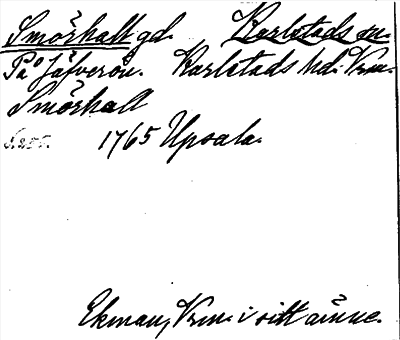 Smörhall gd. Karlstads sn.
På Jäfverön. Karlstads hd. Vrm.
Smörhall
1765 Upsala.
Ekman, Vrm. i sitt ämne.